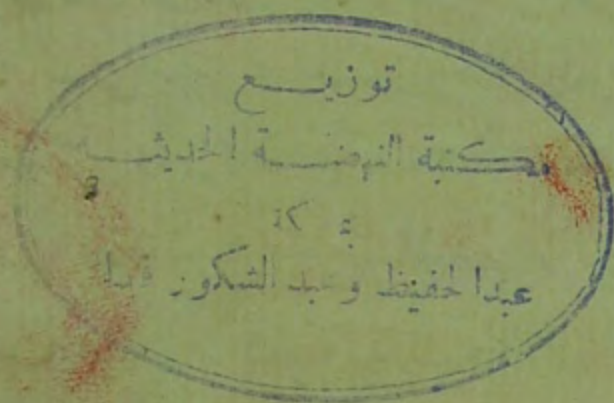 توزيع
مكتبة النهضة الحديثة
بمكة
عبدالحفيظ وعبد الشكور فدا